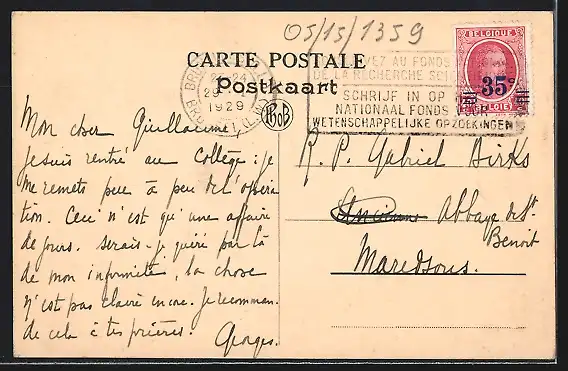 05/15/1359
CARTE POSTALE
Postkaart
BELGIQUE
35c
1929
AU FONDS
DE LA RECHERCHE
SCHRIJF IN OP
NATIONAAL FONDS VOOR
WETENSCHAPPELIJKE OPZOEKINGEN
Mon cher Guillaume,
Je suis rentré au Collège : je
me remets peu à peu de l'opéra
tion. Ceci n'est qu'une affaire
de jours. Serais-je guéri par là
de mon infirmité, la chose
n'est pas claire encore. Je recomman-
de cela à tes prières.
Georges.
R. P. Gabriel Birks
Ancienne Abbaye de St
Benoit
Maredsous.